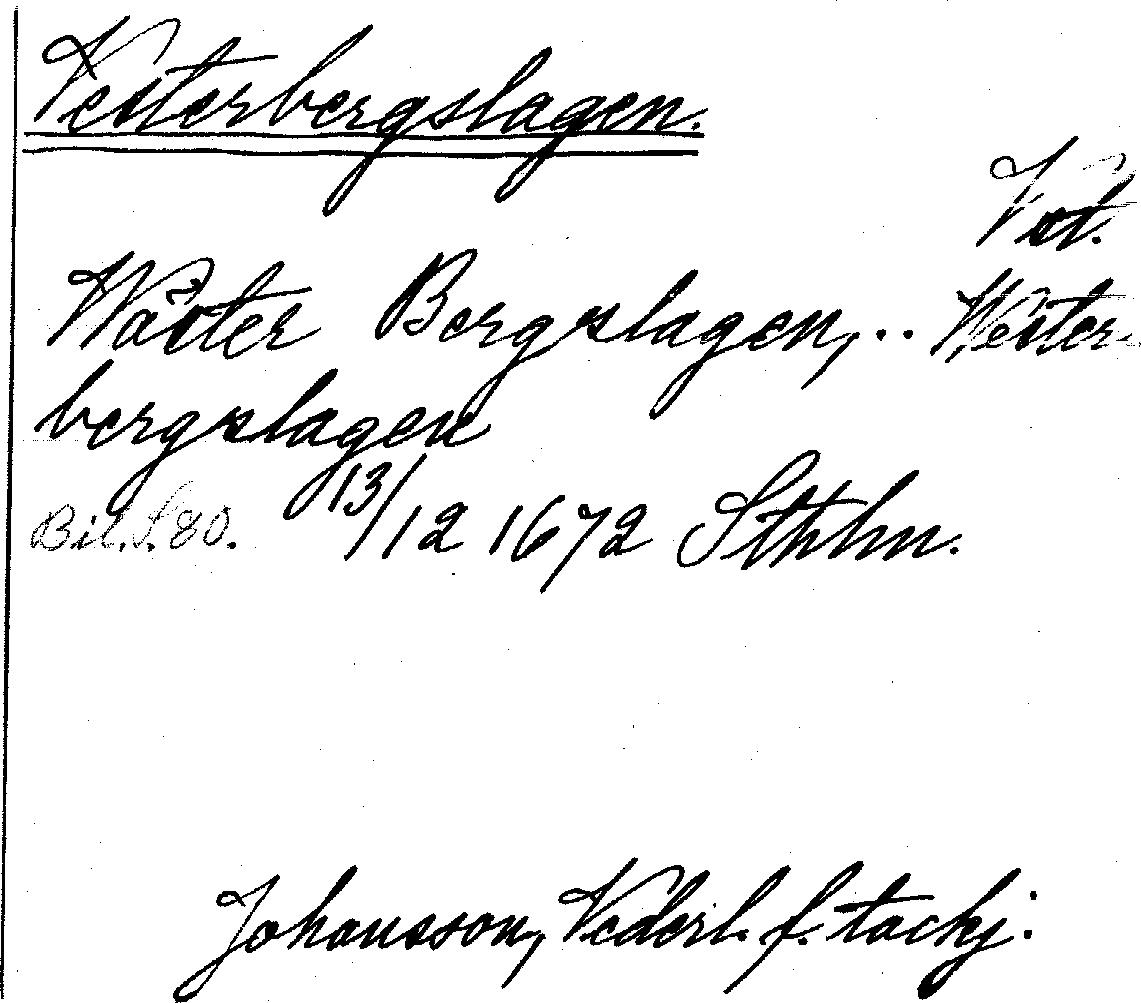 Vesterbergslagen.
Vst.
Wäster Bergslagen,.. Wester-
bergslagen
Bil. S. 80. 13/12 1672 Sthlm.
Johansson, Vederl. f. tackj.